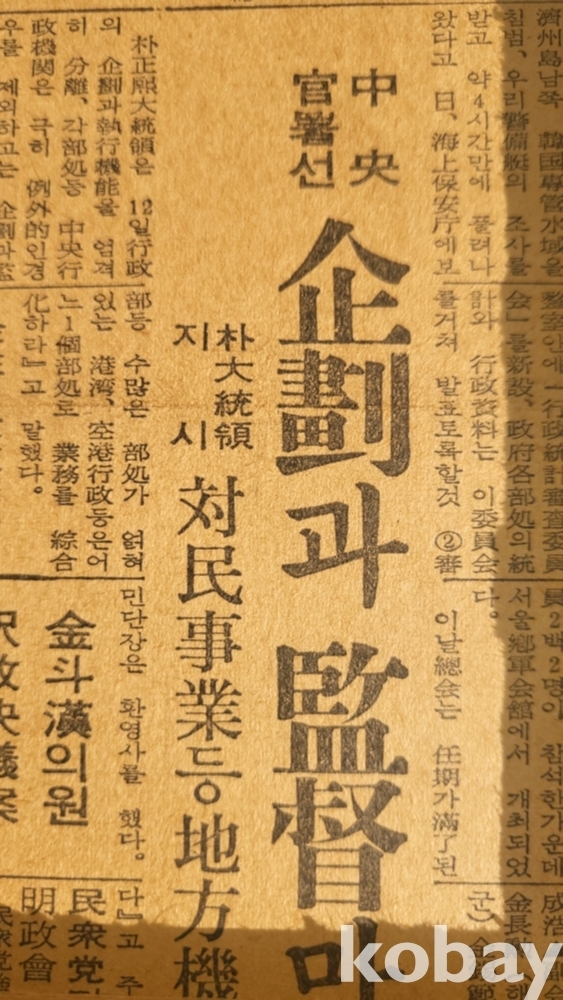 濟州島남쪽 韓国専管水域을
침범、우리警備艇의 조사를
받고 약4시간만에 풀려나
왔다고 日、海上保安庁에보
会」를新設、政府各部処의統
計와 行政資料는 이委員会
를거쳐 발표토록할것 ②審
員2백2명이 참석한가운데
서울鄕軍会館에서 개최되었
다。
이날總会는 任期가滿了된
中央
官署선
企劃과 監督만
朴大統領
지시
対民事業등 地方機
朴正熙大統領은 12일行政
의 企劃과執行機能을 엄격
히 分離、各部処등 中央行
政機関은 극히 例外的인경
우를 제외하고는 企劃과監
部등 수많은 部処가 얽혀
있는 港湾、空港行政등은어
느1個部処로 業務를 綜合
化하라』고 말했다。
민단장은 환영사를 했다。
金斗漢의원
釈放決議案
다』고 주
民衆党
明政會
kobay